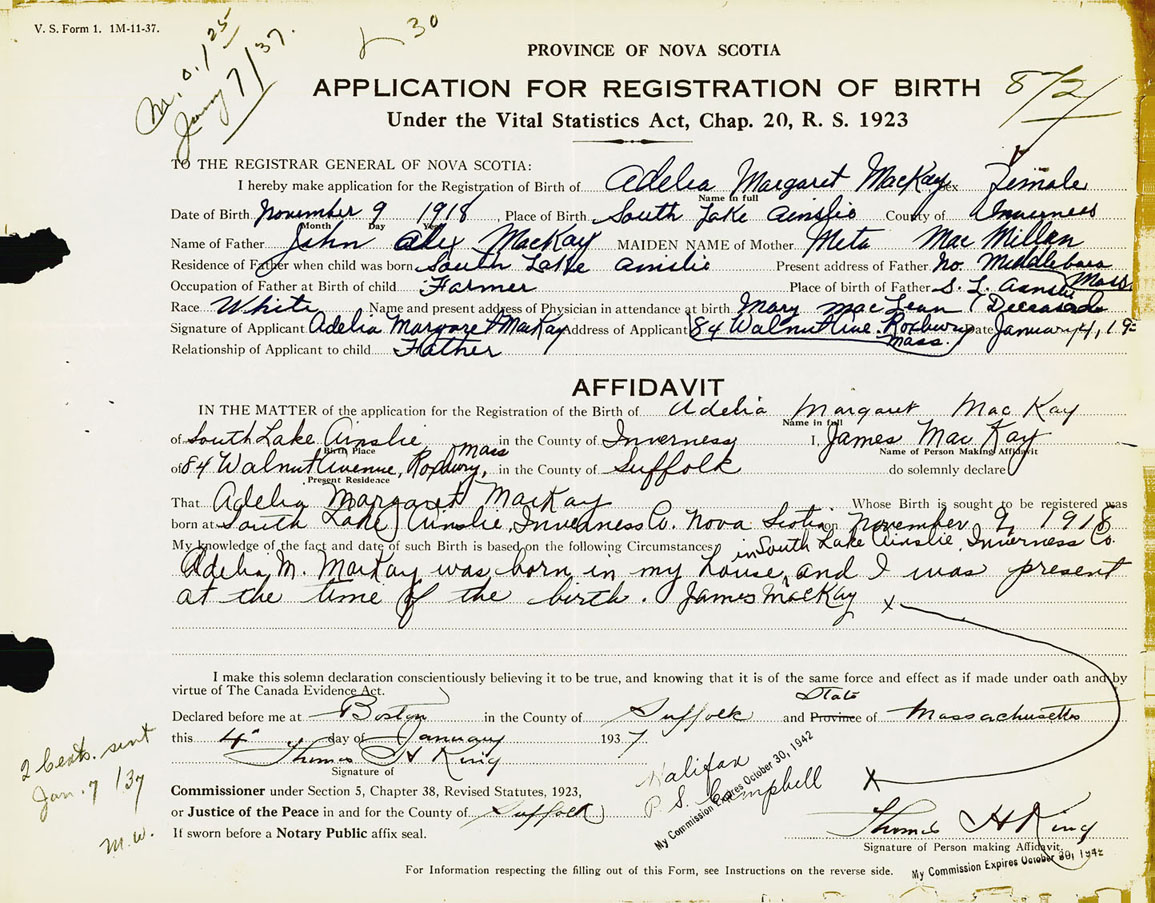 V. S. Form 1. 1M-11-37.
M.O. 1 25
Jany 7/37.
30
PROVINCE OF NOVA SCOTIA
APPLICATION FOR REGISTRATION OF BIRTH
Under the Vital Statistics Act, Chap. 20, R. S. 1923
TO THE REGISTRAR GENERAL OF NOVA SCOTIA:
I hereby make application for the Registration of Birth of Adelia Margaret MacKay Sex Female
Name in full
Date of Birth November 9 1918, Place of Birth South Lake Ainslie County of Inverness
Month Day Year
Name of Father John Alex MacKay MAIDEN NAME of Mother Meta MacMillan
Residence of Father when child was born South Lake Ainslie Present address of Father No. Middleboro Mass
Occupation of Father at Birth of child Farmer Place of birth of Father S. L. Ainslie
Race White Name and present address of Physician in attendance at birth Mary MacLean (Deceased
Signature of Applicant Adelia Margaret MacKay Address of Applicant 84 Walnut Ave. Roxbury Mass. Date January 4, 19
Relationship of Applicant to child Father
AFFIDAVIT
IN THE MATTER of the application for the Registration of the Birth of Adelia Margaret MacKay
Name in full
of South Lake Ainslie in the County of Inverness I, James MacKay
Birth Place Name of Person Making Affidavit
of 84 Walnut Avenue, Roxbury, Mass in the County of Suffolk do solemnly declare
Present Residence
That Adelia Margaret MacKay Whose Birth is sought to be registered was
born at South Lake Ainslie, Inverness Co. Nova Scotia on November 9, 1918
My knowledge of the fact and date of such Birth is based on the following Circumstances
Adelia M. MacKay was born in my house, in South Lake Ainslie, Inverness Co. and I was present
at the time of the birth. James MacKay x
I make this solemn declaration conscientiously believing it to be true, and knowing that it is of the same force and effect as if made under oath and by
virtue of The Canada Evidence Act.
State
Declared before me at Boston in the County of Suffolk and Province of Massachusetts
this 4" day of January 1937
Thomas H King
Signature of
Commissioner under Section 5, Chapter 38, Revised Statutes, 1923,
or Justice of the Peace in and for the County of Suffolk
If sworn before a Notary Public affix seal.
Halifax
P. S. Campbell
My Commission Expires October 30, 1942
X
Thomas H King
Signature of Person making Affidavit.
My Commission Expires October 30, 1942
For Information respecting the filling out of this Form, see Instructions on the reverse side.
2 Certs. sent
Jan. 7/37
M.W.